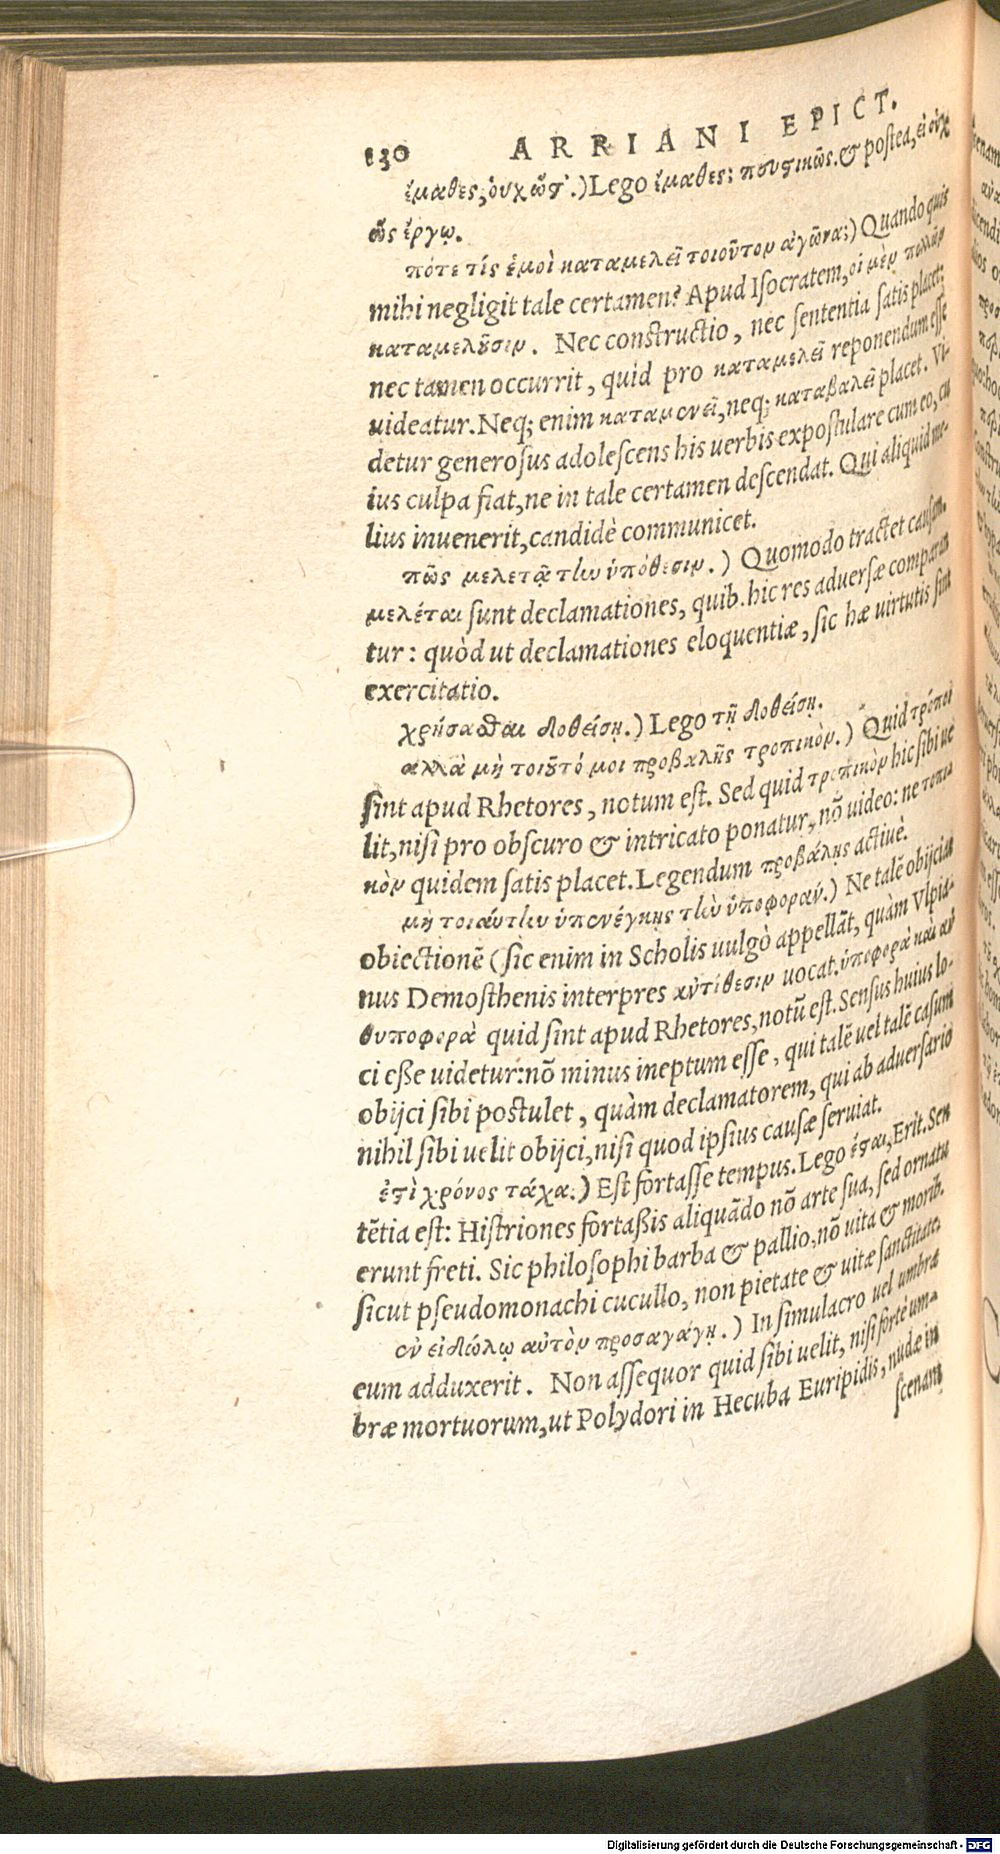 130 ARRIANI EPICT.
ἔμαθες, οὐχ ὥστ᾽.) Lego ἔμαθες; πυστικῶς. & postea, εἰ οὐχ
ὡς ἔργῳ.
πότε τίς ἐμοὶ καταμελεῖ τοιοῦτον ἀγῶνα;) Quando quis
mihi negligit tale certamen? Apud Isocratem, οἱ μὲν πολλῶν
καταμελοῦσιν. Nec constructio, nec sententia satis placet:
nec tamen occurrit, quid pro καταμελεῖ reponendum esse
uideatur. Neq; enim καταμενεῖ, neq; καταβαλεῖ placet. Vi-
detur generosus adolescens his uerbis expostulare cum eo, cu
ius culpa fiat, ne in tale certamen descendat. Qui aliquid me-
lius inuenerit, candidè communicet.
πῶς μελετᾷ τὴν ὑπόθεσιν.) Quomodo tractet causam.
μελέται sunt declamationes, quib. hic res aduersæ comparan
tur: quòd ut declamationes eloquentiæ, sic hæ uirtutis sint
exercitatio.
χρήσασθαι δοθείσῃ.) Lego τῇ δοθείσῃ.
ἀλλὰ μὴ τοιοῦτό μοι προβαλῇς τροπικὸν.) Quid τρόποι
sint apud Rhetores, notum est. Sed quid τροπικὸν hic sibi ue
lit, nisi pro obscuro & intricato ponatur, nõ uideo: ne τοπι
κὸν quidem satis placet. Legendum προβάλῃς actiuè.
μὴ τοιαύτην ὑπενέγκῃς τὴν ὑποφοραν.) Ne talẽ obijcias
obiectionẽ (sic enim in Scholis uulgò appellãt, quàm Vlpia-
nus Demosthenis interpres αντίθεσιν uocat. ὑποφορὰ και αν
θυποφορὰ quid sint apud Rhetores, notũ est. Sensus huius lo-
ci esse uidetur: nõ minus ineptum esse, qui talẽ uel talẽ casum
obijci sibi postulet, quàm declamatorem, qui ab aduersario
nihil sibi uelit obijci, nisi quod ipsius causæ seruiat.
ἐστὶ χρόνος τάχα.) Est fortasse tempus. Lego ἔσται, Erit. Sen
tẽtia est: Histriones fortaßis aliquãdo nõ arte sua, sed ornatu
erunt freti. Sic philosophi barba & pallio, nõ uita & morib.
sicut pseudomonachi cucullo, non pietate & uitæ sanctitate.
εν ειδώλῳ αὐτὸν προσαγάγῃ.) In simulacro uel umbræ
eum adduxerit. Non assequor quid sibi uelit, nisi fortè um-
bræ mortuorum, ut Polydori in Hecuba Euripidis, nudæ in
scenam
Digitalisierung gefördert durch die Deutsche Forschungsgemeinschaft - DFG